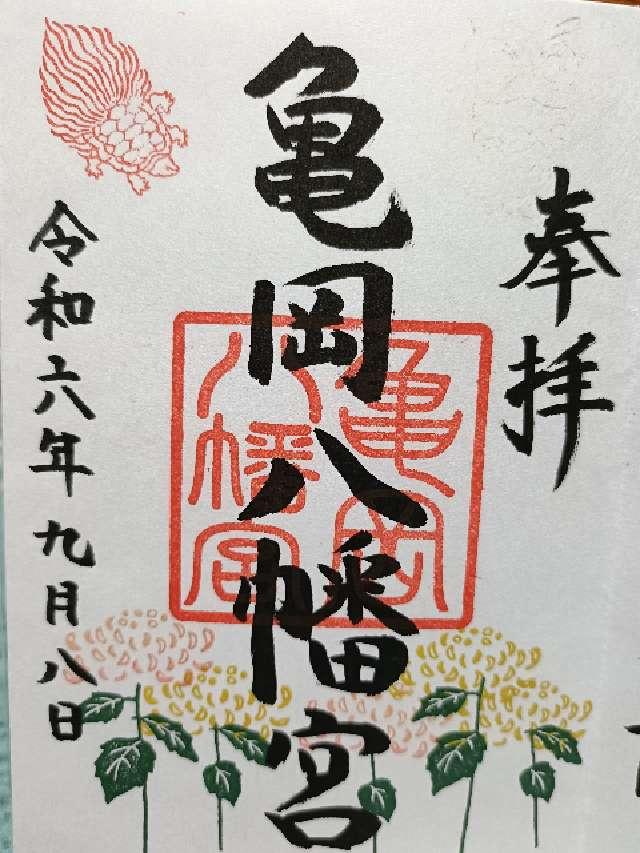 奉拝
亀岡八幡宮
亀岡
八幡宮
令和六年九月八日